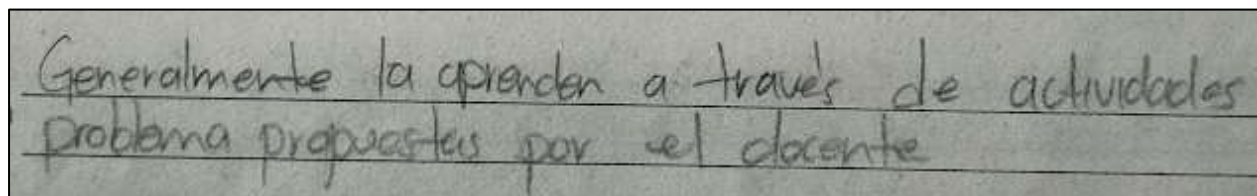 Generalmente la aprenden a través de actividades
problema propuestas por el docente